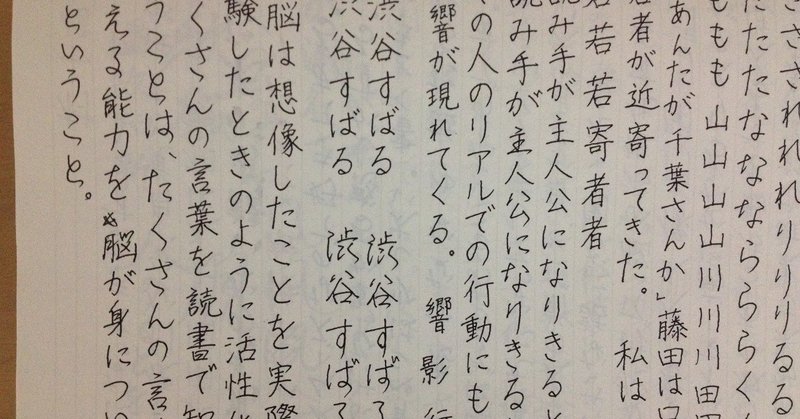 ささされれれりりりるる
たたたなななららら く
ももも山山山山川川川田
あんたが千葉さんか」藤田は
若者が近寄ってきた。 私は
若若若寄者者
読み手が主人公になりきると
読み手が主人公になりきる
の人のリアルでの行動にも
響が現れてくる。 響影行
渋谷すばる 渋谷すばる
渋谷すばる 渋谷すばる
脳は想像したことを実際
験したときのように活性
くさんの言葉を読書で知
うことは、たくさんの言
える能力を脳が身につい
ということ。